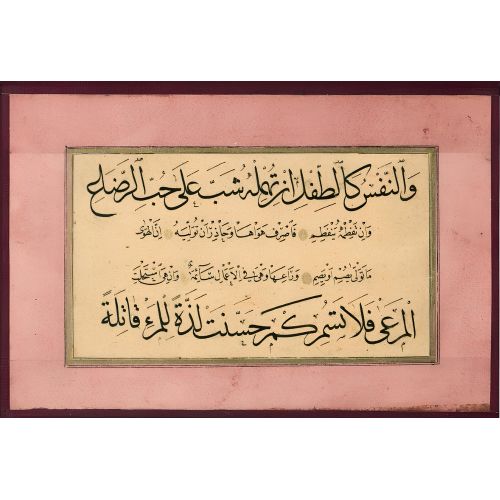 والنفس كالطفل ان تهمله شب على حب الرضاع
وان تفطمه ينفطم فاصرف هواها وحاذر ان توليه ان الهوى
ما تولى يصم او يصم وراعها وهي في الاعمال سائمة وان هي استحلت
المرعى فلا تسم كم حسنت لذة للمرء قاتلة